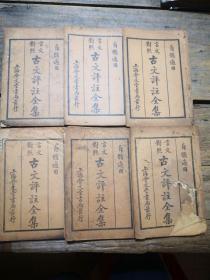 自修適用
言文對照 古文評註全集
上海會文堂書局
自修適用
言文對照 古文評註全集
上海會文堂書局
自修適用
言文對照 古文評註全集
上海會文堂書局
自修適用
言文對照 古文評註全集
上海會文堂書局
自修適用
言文對照 古文評註全集
上海會文堂書局
自修適用
言文對照 古文評註全集
上海會文堂書局